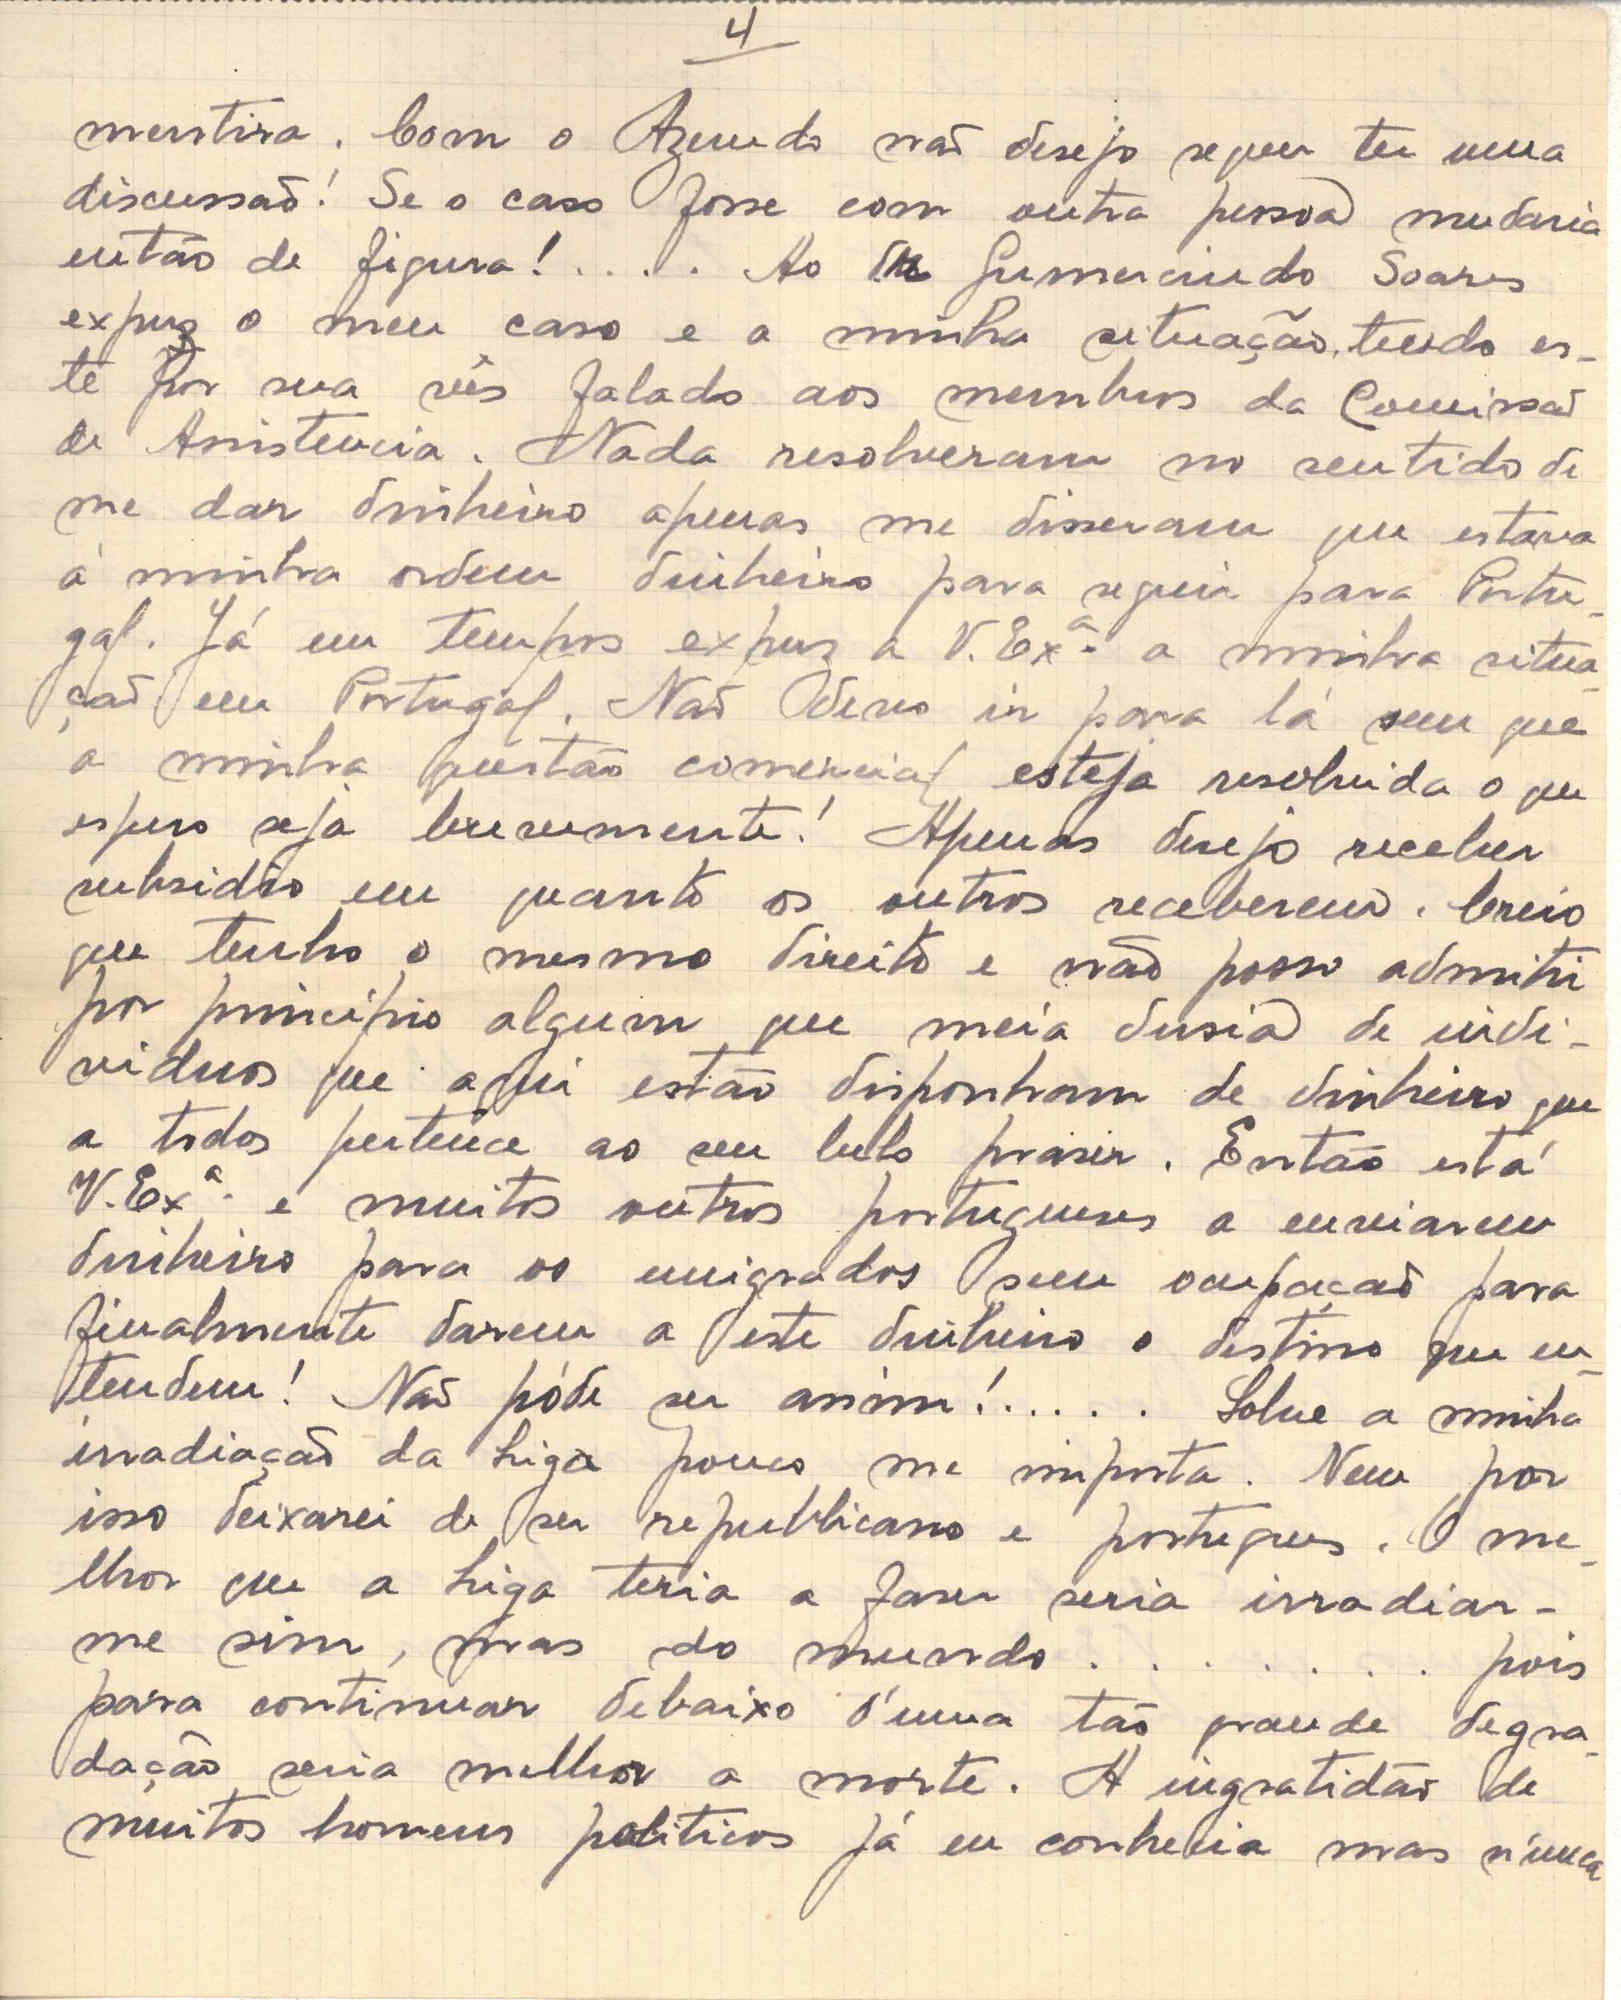 4
mentira. Com o Azeuedo naõ desejo sequer ter uma
discussaõ! Se o caso fosse com outra pessoa mudaria
então de figura!.... Ao Gumercindo Soares
expuz o meu caso e a minha situação, tendo es-
te por sua vês falado aos membros da Comissaõ
de Assistencia. Nada resolveram no sentido de
me dar dinheiro apenas me disseram que estava
á minha ordem dinheiro para seguir para Portu-
gal. Já em tempos expuz a V. Exª. a minha situa-
çaõ em Portugal. Naõ devo ir para lá sem que
a minha questão comercial esteja resolvida o que
espero seja brevemente! Apenas desejo receber
subsidio em quanto os outros receberem. Creio
que tenho o mesmo direito e não posso admitir
por principio algum que meia dusia de indi-
viduos que aqui estão disponham de dinheiro que
a todos pertence ao seu belo praser. Então está
V. Exª. e muitos outros portugueses a enviarem
dinheiro para os emigrados sem ocupaçaõ para
finalmente darem a este dinheiro o destino que en-
tendem! Naõ póde ser assim!..... Sobre a minha
irradiaçaõ da Liga pouco me importa. Nem por
isso deixarei de ser republicano e portugues. O me-
lhor que a Liga teria a faser seria irradiar-
me sim, mas do mundo........ pois
para continuar debaixo d'uma taõ grande degra-
dação seria melhor a morte. A ingratidão de
muitos homens politicos já eu conhecia mas n'unca